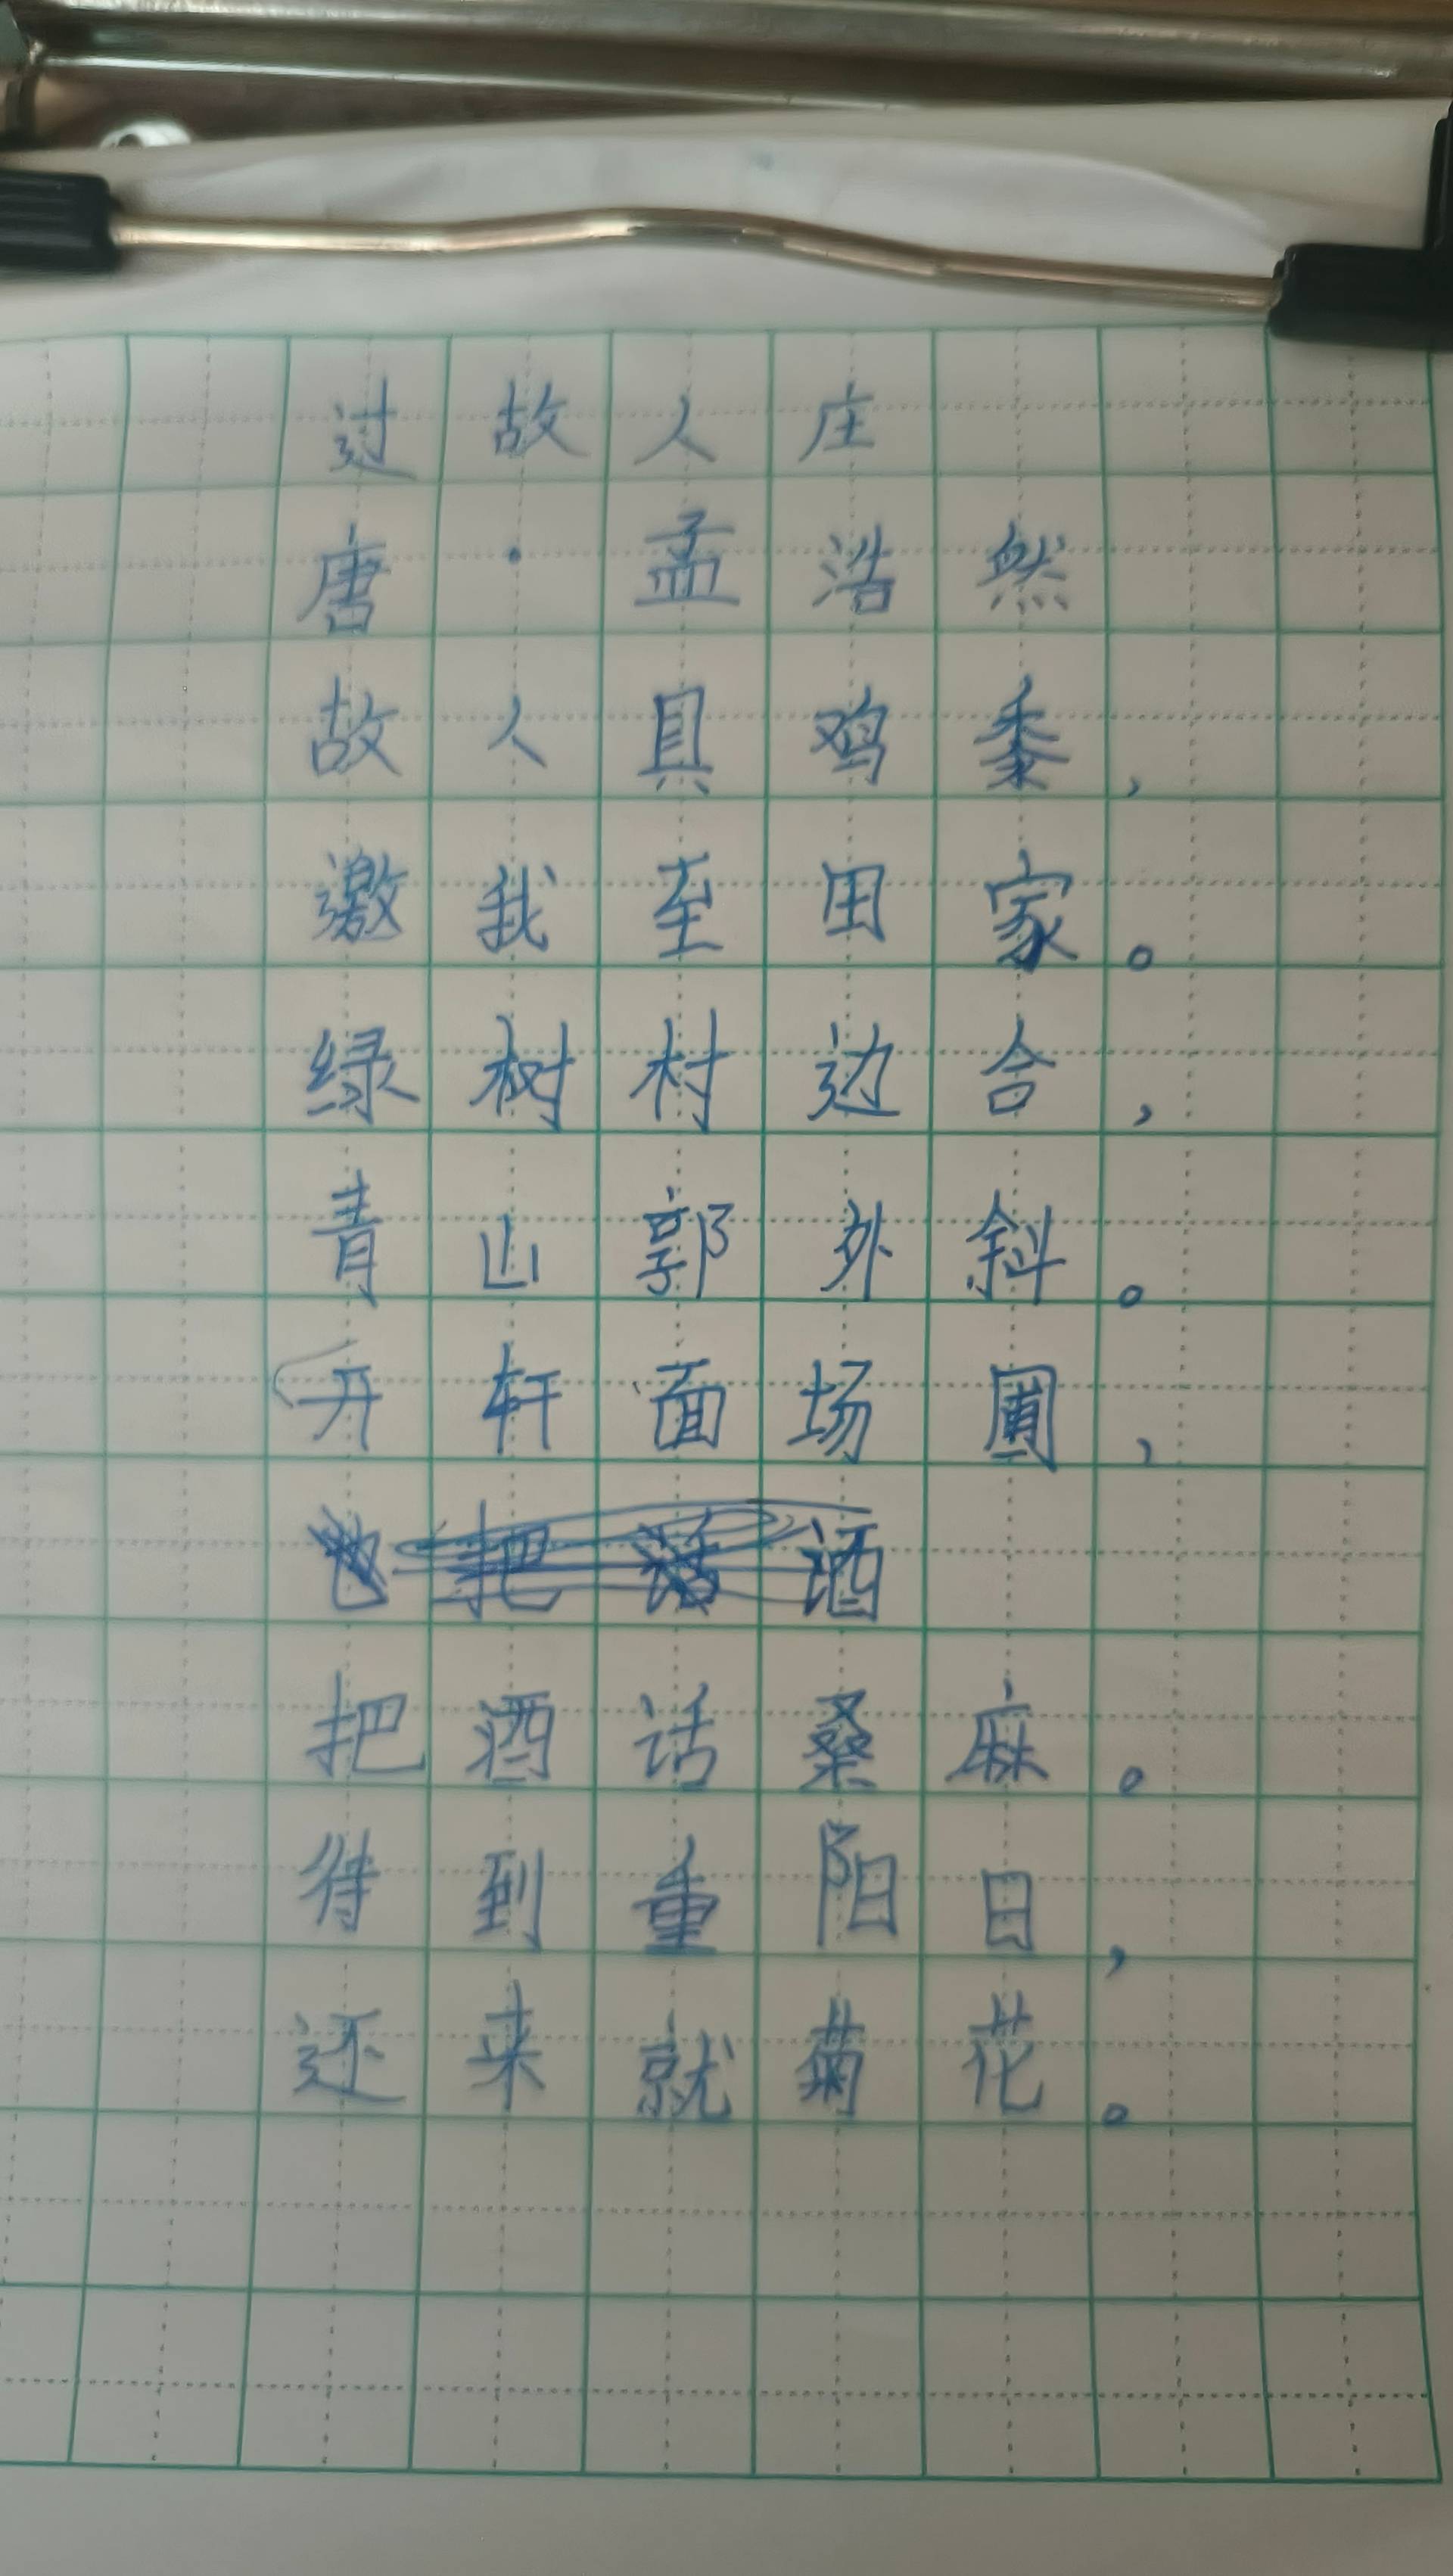 过故人庄
唐·孟浩然
故人具鸡黍，
邀我至田家。
绿树村边合，
青山郭外斜。
开轩面场圃，
把酒话桑麻。
待到重阳日，
还来就菊花。